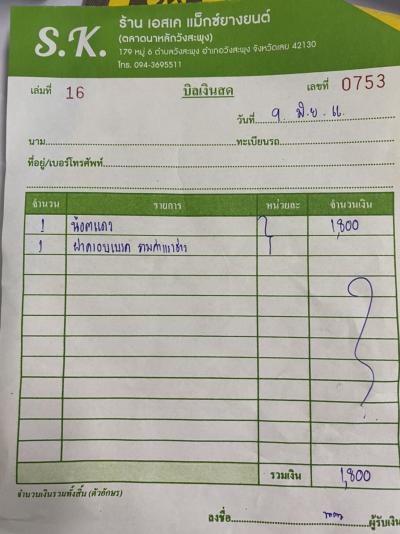 S.K.
ร้าน เอสเค แม็กซ์ยางยนต์
(ตลาดนาหลักวังสะพุง)
179 หมู่ 6 ตำบลวังสะพุง อำเภอวังสะพุง จังหวัดเลย 42130
โทร. 094-3695511
เล่มที่ 16 บิลเงินสด เลขที่ 0753
วันที่ 9 มิ.ย.
นาม ทะเบียนรถ
ที่อยู่/เบอร์โทรศัพท์
จำนวน รายการ หน่วยละ จำนวนเงิน
1 1,800
1
รวมเงิน 1,800
จำนวนเงินรวมทั้งสิ้น (ตัวอักษร)
ลงชื่อ ผู้รับเงิน